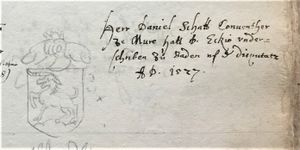 Herr Daniel Schatt Conventher
ze Mure hatt D. Eckio under-
schriben zu Baden uf d. disputatz
A.D. 1527.